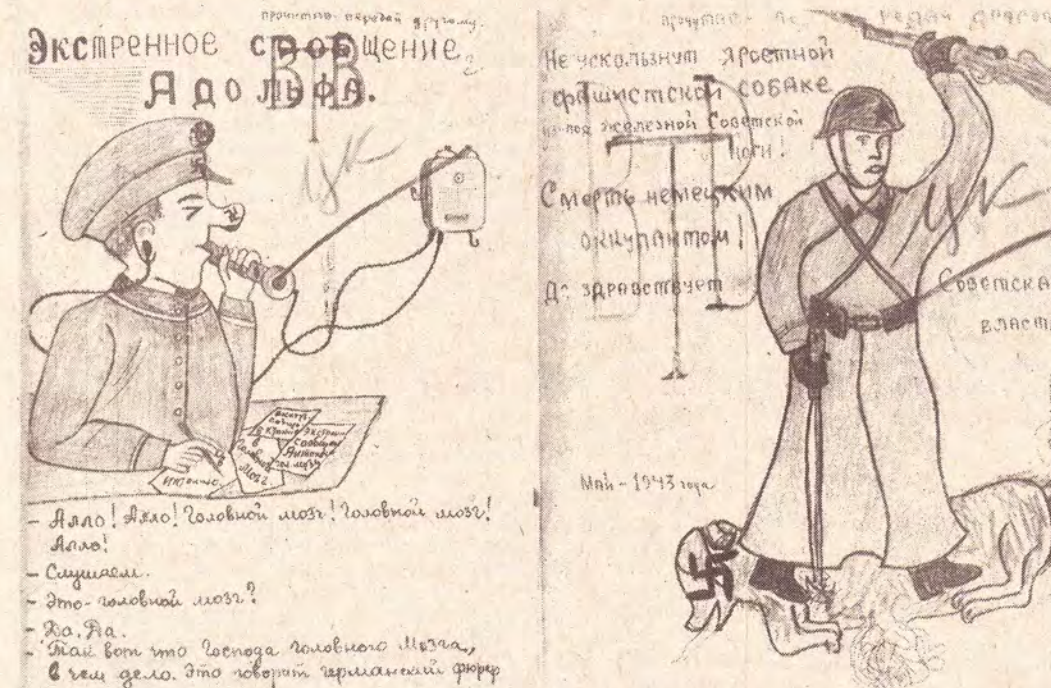 прочитав передай другому.
Экстренное сообщение
Адольфа.
ВТВ
УК
в
Головной
мозг.
Экстрен
сообщен
- Алло! Алло! Головной мозг! Головной мозг!
Алло!
- Слушаем.
- Это - головной мозг?
- Да. Да.
- Так вот что Господа головного Мозга,
в чем дело. Это говорит германский фюрер
прочитав
передай
Не ускользнут яростной
фашистской собаке
из-под железной Советской
ноги!
Смерть немецким
оккупантом!
Да здравствует
Советска
власт
ВТВ
УК
Май - 1943 года